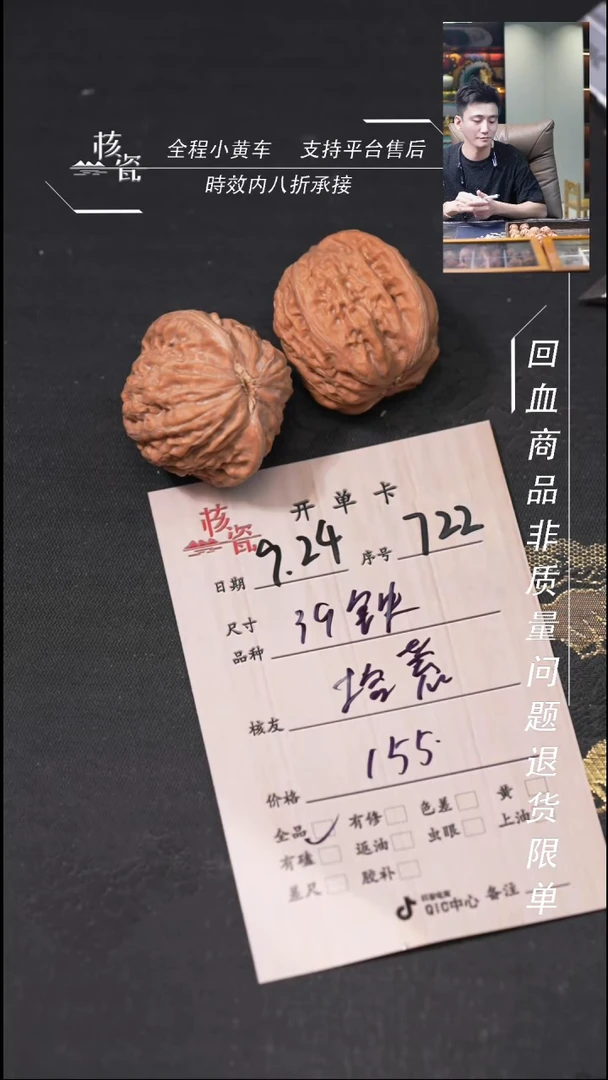 核瓷
全程小黄车 支持平台售后
時效内八折承接
回血商品非质量问题退货限单
核瓷
开单卡
日期 9.24 序号 722
尺寸 39
品种
核友
155.
价格
全品 有修 色差 黄
有磕 返油 虫眼 上油
差尺 胶补
QIC中心 备注